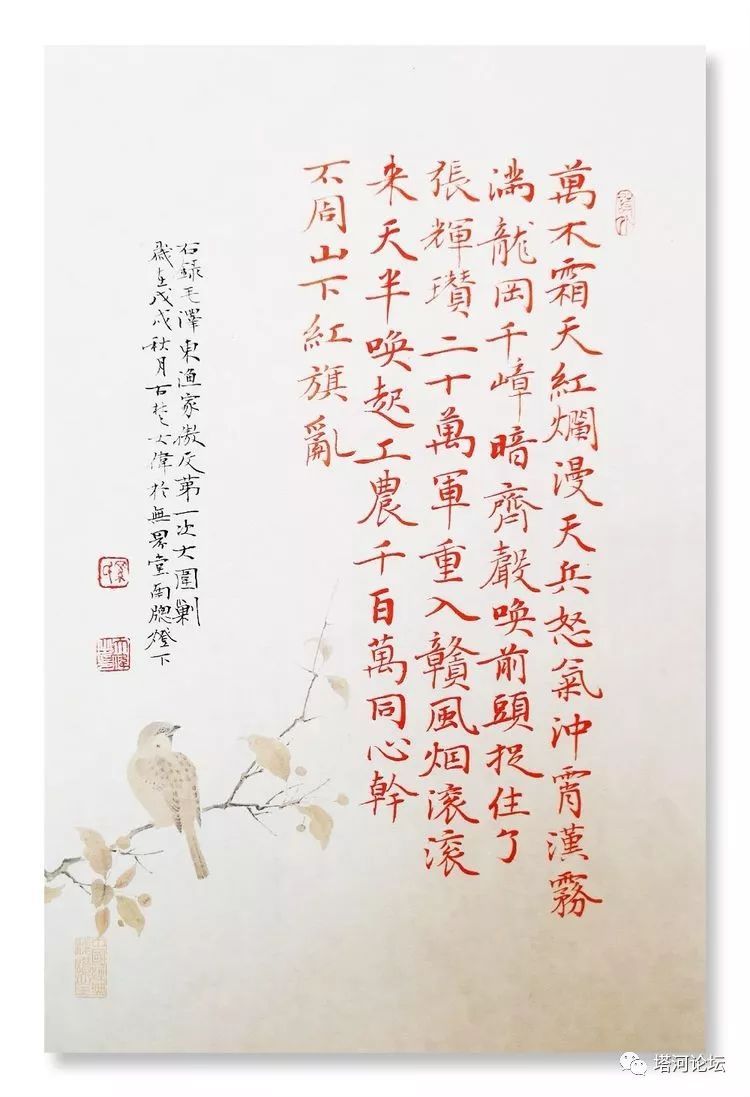 萬木霜天紅爛漫天兵怒氣沖霄漢霧
滿龍岡千嶂暗齊聲喚前頭捉住了
張輝瓚二十萬軍重入贛風烟滾滾
来天半喚起工農千百萬同心幹
不周山下紅旗亂
右錄毛澤東漁家傲反第一次大圍剿
歲在戊戌秋月古楚大偉於無界堂南牕燈下
塔河论坛